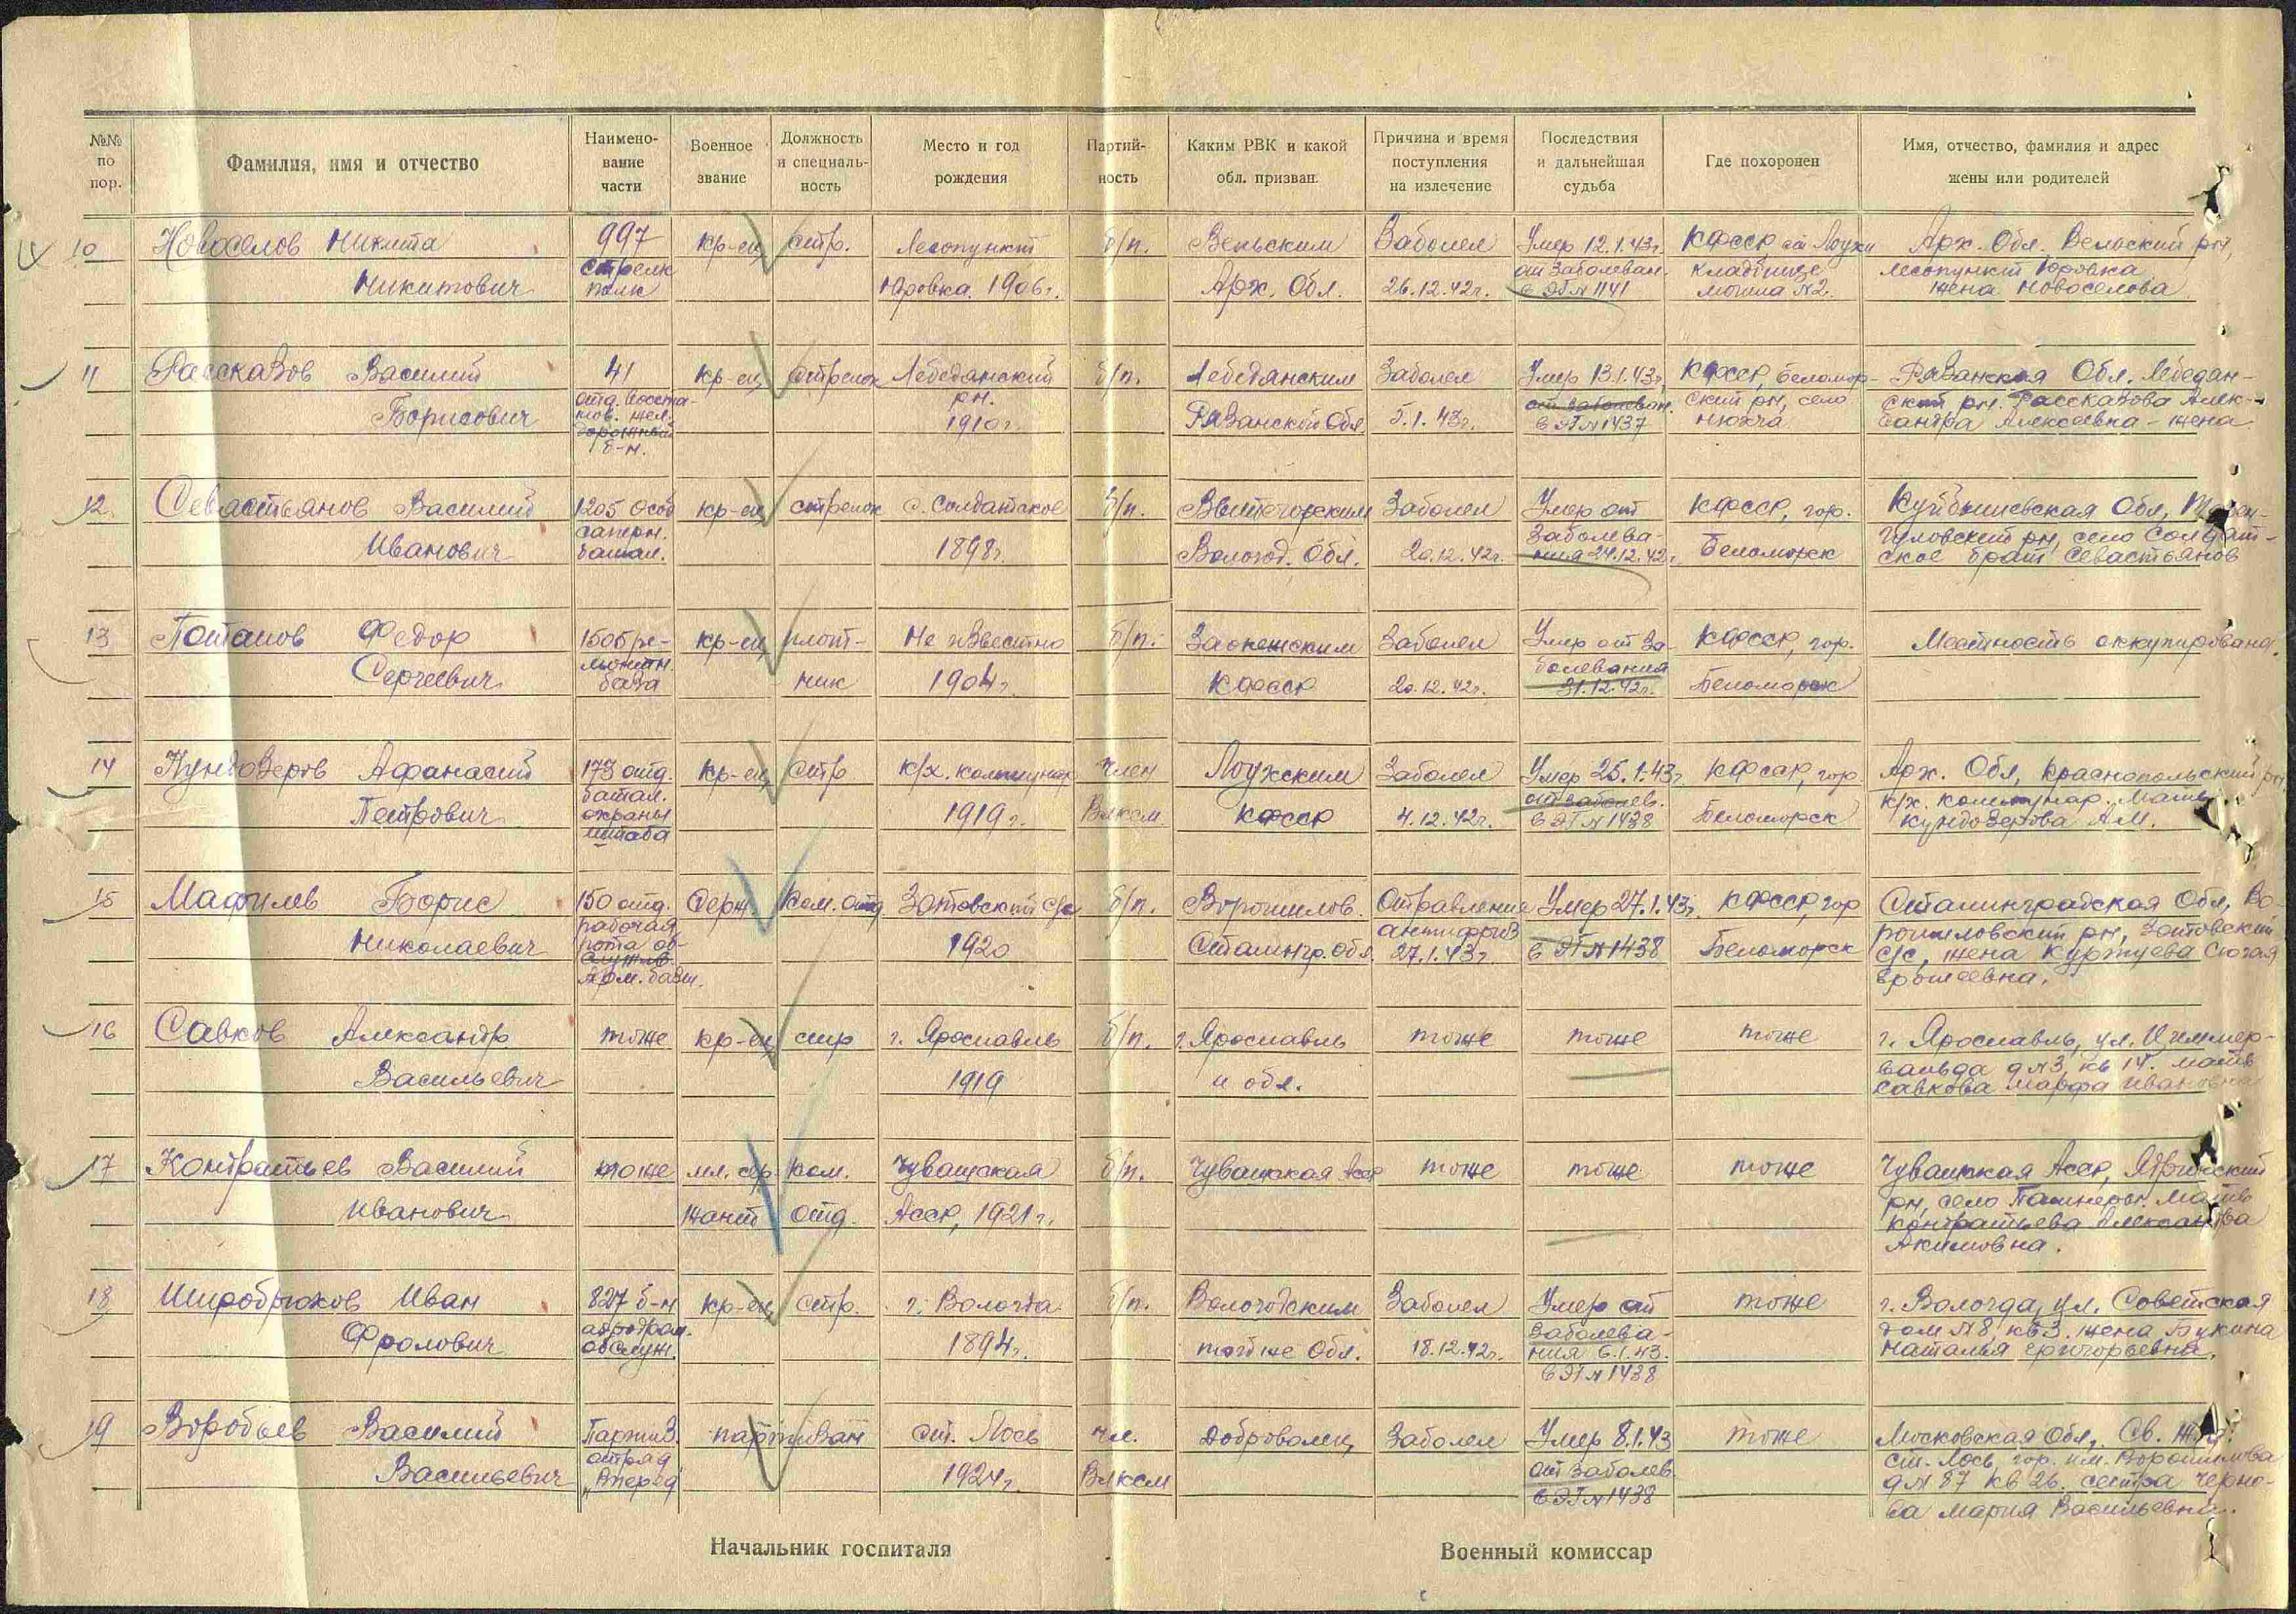 №№ по пор.
Фамилия, имя и отчество
Наимено-
вание
части
Военное
звание
Должность
и специаль-
ность
Место и год
рождения
Партий-
ность
Каким РВК и какой
обл. призван.
Причина и время
поступления
на излечение
Последствия
и дальнейшая
судьба
Где похоронен
Имя, отчество, фамилия и адрес
жены или родителей
10
Новоселов Никита
Никитович
997
стрелк
полк
кр-ец
стр.
Лесопункт
Юровка 1906г.
б/п.
Вельским
Арх. Обл.
Заболел
26.12.42г.
Умер 12.1.43г.
от заболеван.
в ЭГ№1141
КФССР, ст Лоухи
кладбище
могила №2.
Арх. Обл. Вельский рн,
лесопункт Юровка
жена Новоселова
11
Рассказов Василий
Борисович
41
отд. восста-
нов. жел.
дорожный
б-н.
кр-ец
стрелок
Лебедянский
рн.
1910г.
б/п.
Лебедянским
Рязанской Обл
Заболел
5.1.43г.
Умер 13.1.43г.
от заболеван.
в ЭГ№1437
КФССР, Беломор-
ский рн, село
Нюхча
Рязанская Обл. Лебедян-
ский рн. Рассказова Алек-
сандра Алексеевна - жена
12
Севастьянов Василий
Иванович
1205 особ
саперн.
батал.
кр-ец
стрелок
с. Солдатское
1898г.
б/п.
Вытегорским
Вологод. Обл.
Заболел
20.12.42г.
Умер от
заболева-
ния 24.12.42г.
КФССР, гор.
Беломорск
Куйбышевская Обл,
рн, село Солдат-
ское брат Севастьянов
13
Потапов Федор
Сергеевич
1506 ре-
монтн.
база
кр-ец
плот-
ник
Не известно
1904г.
б/п.
Заонежским
КФССР
Заболел
20.12.42г.
Умер от за-
болевания
31.12.42г.
КФССР, гор.
Беломорск
Местность оккупирована.
14
Кундозеров Афанасий
Петрович
173 отд.
батал.
охраны
штаба
кр-ец
стр
к/х. коммунар
1919г.
член
Влксм
Лоухским
КФССР
Заболел
4.12.42г.
Умер 25.1.43г
от заболев.
в ЭГ№1438
КФССР, гор.
Беломорск
Арх. Обл, Краснопольский рн
к/х. коммунар. Мать
Кундозерова А.М.
15
Мафилев Борис
Николаевич
150 отд.
рабочая
рота об-
служив.
Арм. базы.
Серж.
Ком. отд
Зотовский с/с
1920
б/п.
Ворошилов.
Сталингр. Обл.
Отравление
антифриз
27.1.43г
Умер 27.1.43г.
в ЭГ№1438
КФССР, гор
Беломорск
Сталинградская Обл, Во-
рошиловский рн, Зотовский
с/с, жена
16
Савков Александр
Васильевич
тоже
кр-ец
стр
г. Ярославль
1919
б/п.
г. Ярославль
и обл.
тоже
тоже
тоже
г. Ярославль, ул. Циммер-
вальда д№3, кв 14. мать
Савкова Марфа Ивановна
17
Контратьев Василий
Иванович
тоже
мл. сер
жант
Ком.
отд.
Чувашская
Асср, 1921г.
б/п.
Чувашская Асср
тоже
тоже
тоже
Чувашская Асср, Ядринский
рн, село Мать
Контратьева Александра
Акимовна.
18
Широбрюхов Иван
Фролович
827 б-н
аэродром.
обслуж.
кр-ец
стр.
г. Вологда
1894г.
б/п.
Вологодским
тойже Обл.
Заболел
18.12.42г.
Умер от
заболева-
ния 6.1.43.
в ЭГ№1438
тоже
г. Вологда, ул. Советская
дом №8, кв 3. жена Букина
Наталья Григорьевна.
19
Воробьев Василий
Васильевич
Партиз.
отряд
„Вперед"
партизан
ст. Лось
1924г.
чл.
Влксм
Доброволец
Заболел
Умер 8.1.43
от заболев
в ЭГ№1438
тоже
Московская Обл, Св.
ст. Лось, гор. им. Ворошилова
д№87 кв 26. сестра Черно-
ва Мария Васильевна.
Начальник госпиталя
Военный комиссар